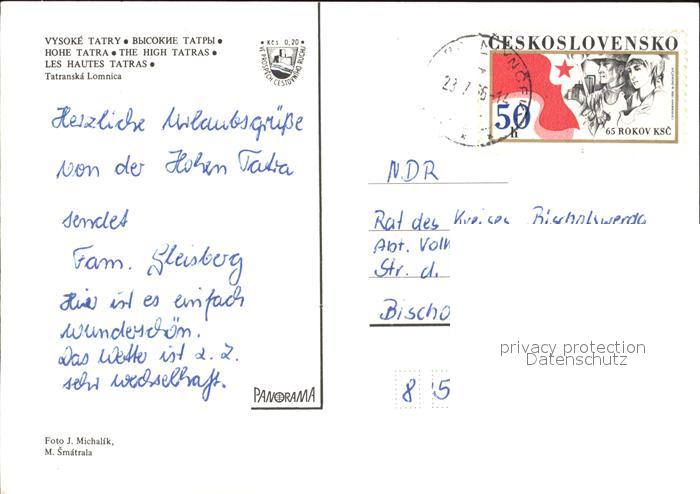 VYSOKÉ TATRY • ВЫСОКИЕ ТАТРЫ •
HOHE TATRA • THE HIGH TATRAS •
LES HAUTES TATRAS •
Tatranská Lomnica
Kčs 0,20
VE PROSPĚCH CESTOVNÍHO RUCHU
Herzliche Urlaubsgrüße
von der Hohen Tatra
sendet
Fam. Gleisberg
Hier ist es einfach
wunderschön.
Das Wetter ist z. Z.
sehr wechselhaft.
PANORAMA
Foto J. Michalík,
M. Šmátrala
ČESKOSLOVENSKO
50
h
65 ROKOV KSČ
23.7.86-12
Rat des Kreises Bischofswerda
Abt. Volk
Str. d.
Bischo
8 5
privacy protection
Datenschutz